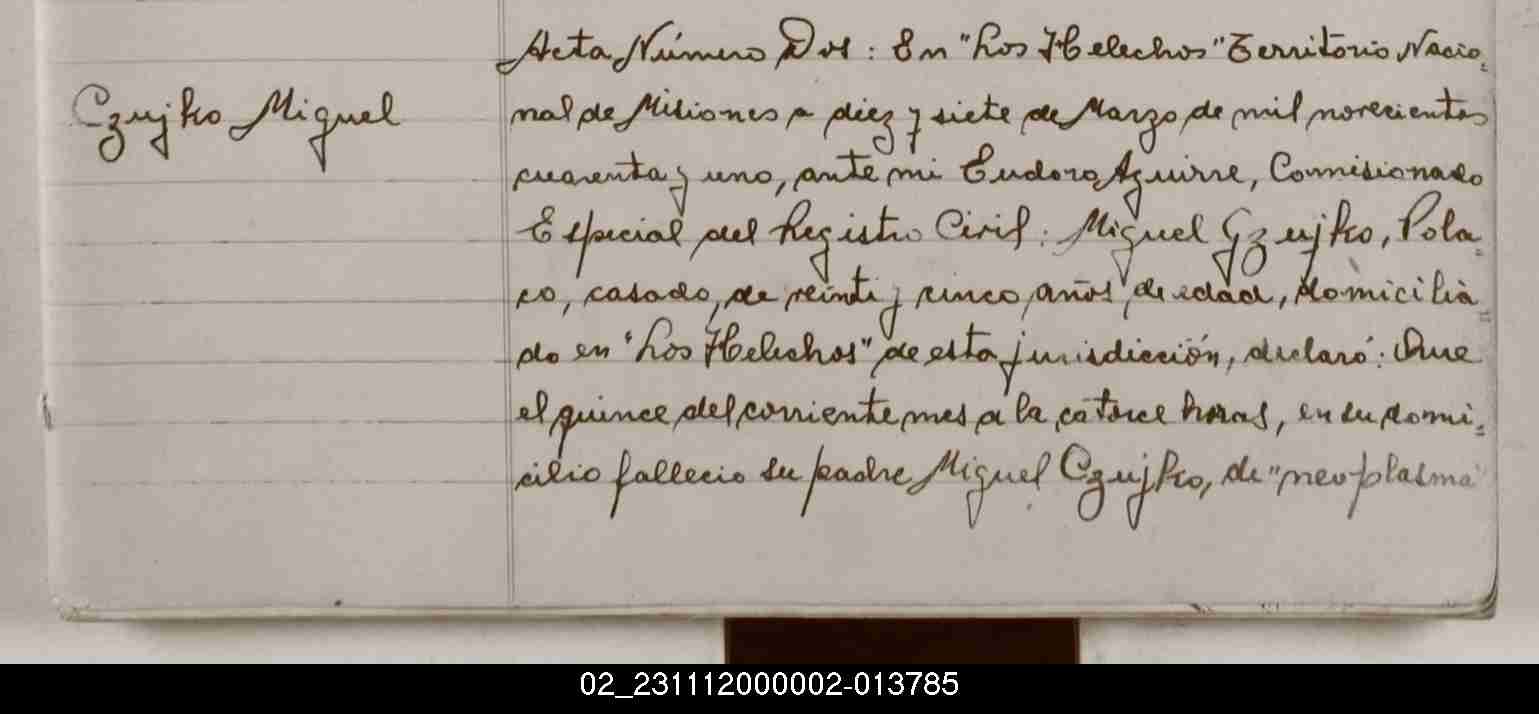 Acta Número Dos: En "Los Helechos" Territorio Nacio=
Czujko Miguel
nal de Misiones a diez y siete de Marzo de mil novecientos
cuarenta y uno, ante mi Eudoro Aguirre, Comisionado
Especial del Registro Civil: Miguel Czujko, Pola=
co, casado, de veinte y cinco años de edad, domicilia=
do en "Los Helechos" de esta jurisdicción, declaró: Que
el quince del corriente mes a la catorce horas, en su domi=
cilio fallecio su padre Miguel Czujko, de "neoplasma"
02_231112000002-013785